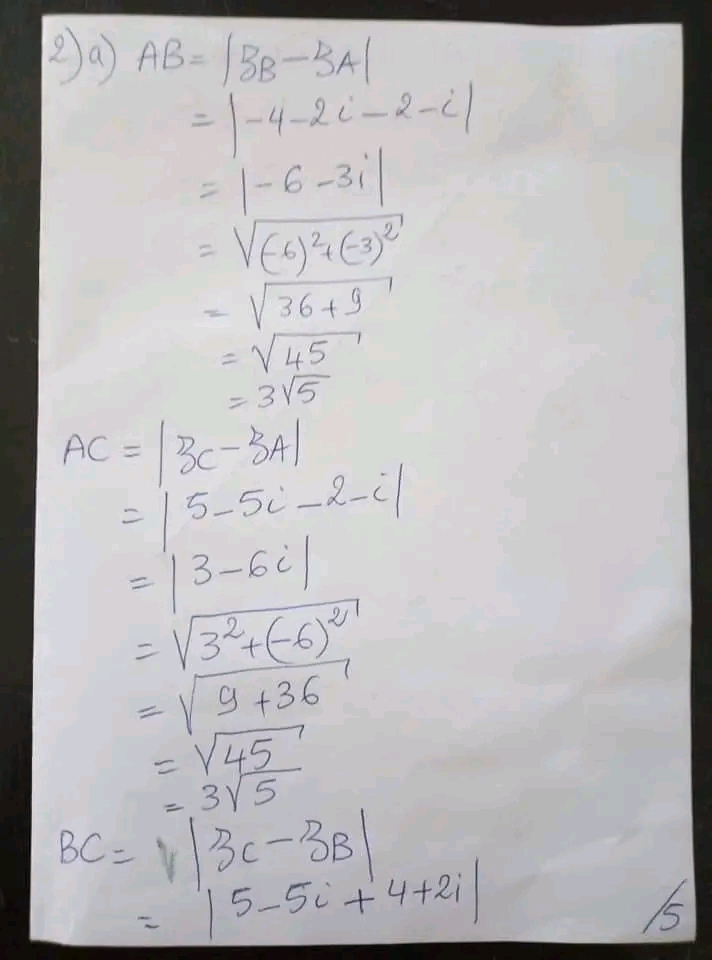 2) a) AB = |zB - zA|
= |-4-2i-2-i|
= |-6-3i|
= √((-6)²+(-3)²)
= √(36+9)
= √45
= 3√5
AC = |zC - zA|
= |5-5i-2-i|
= |3-6i|
= √(3²+(-6)²)
= √(9+36)
= √45
= 3√5
BC = |zC - zB|
= |5-5i+4+2i|
/5